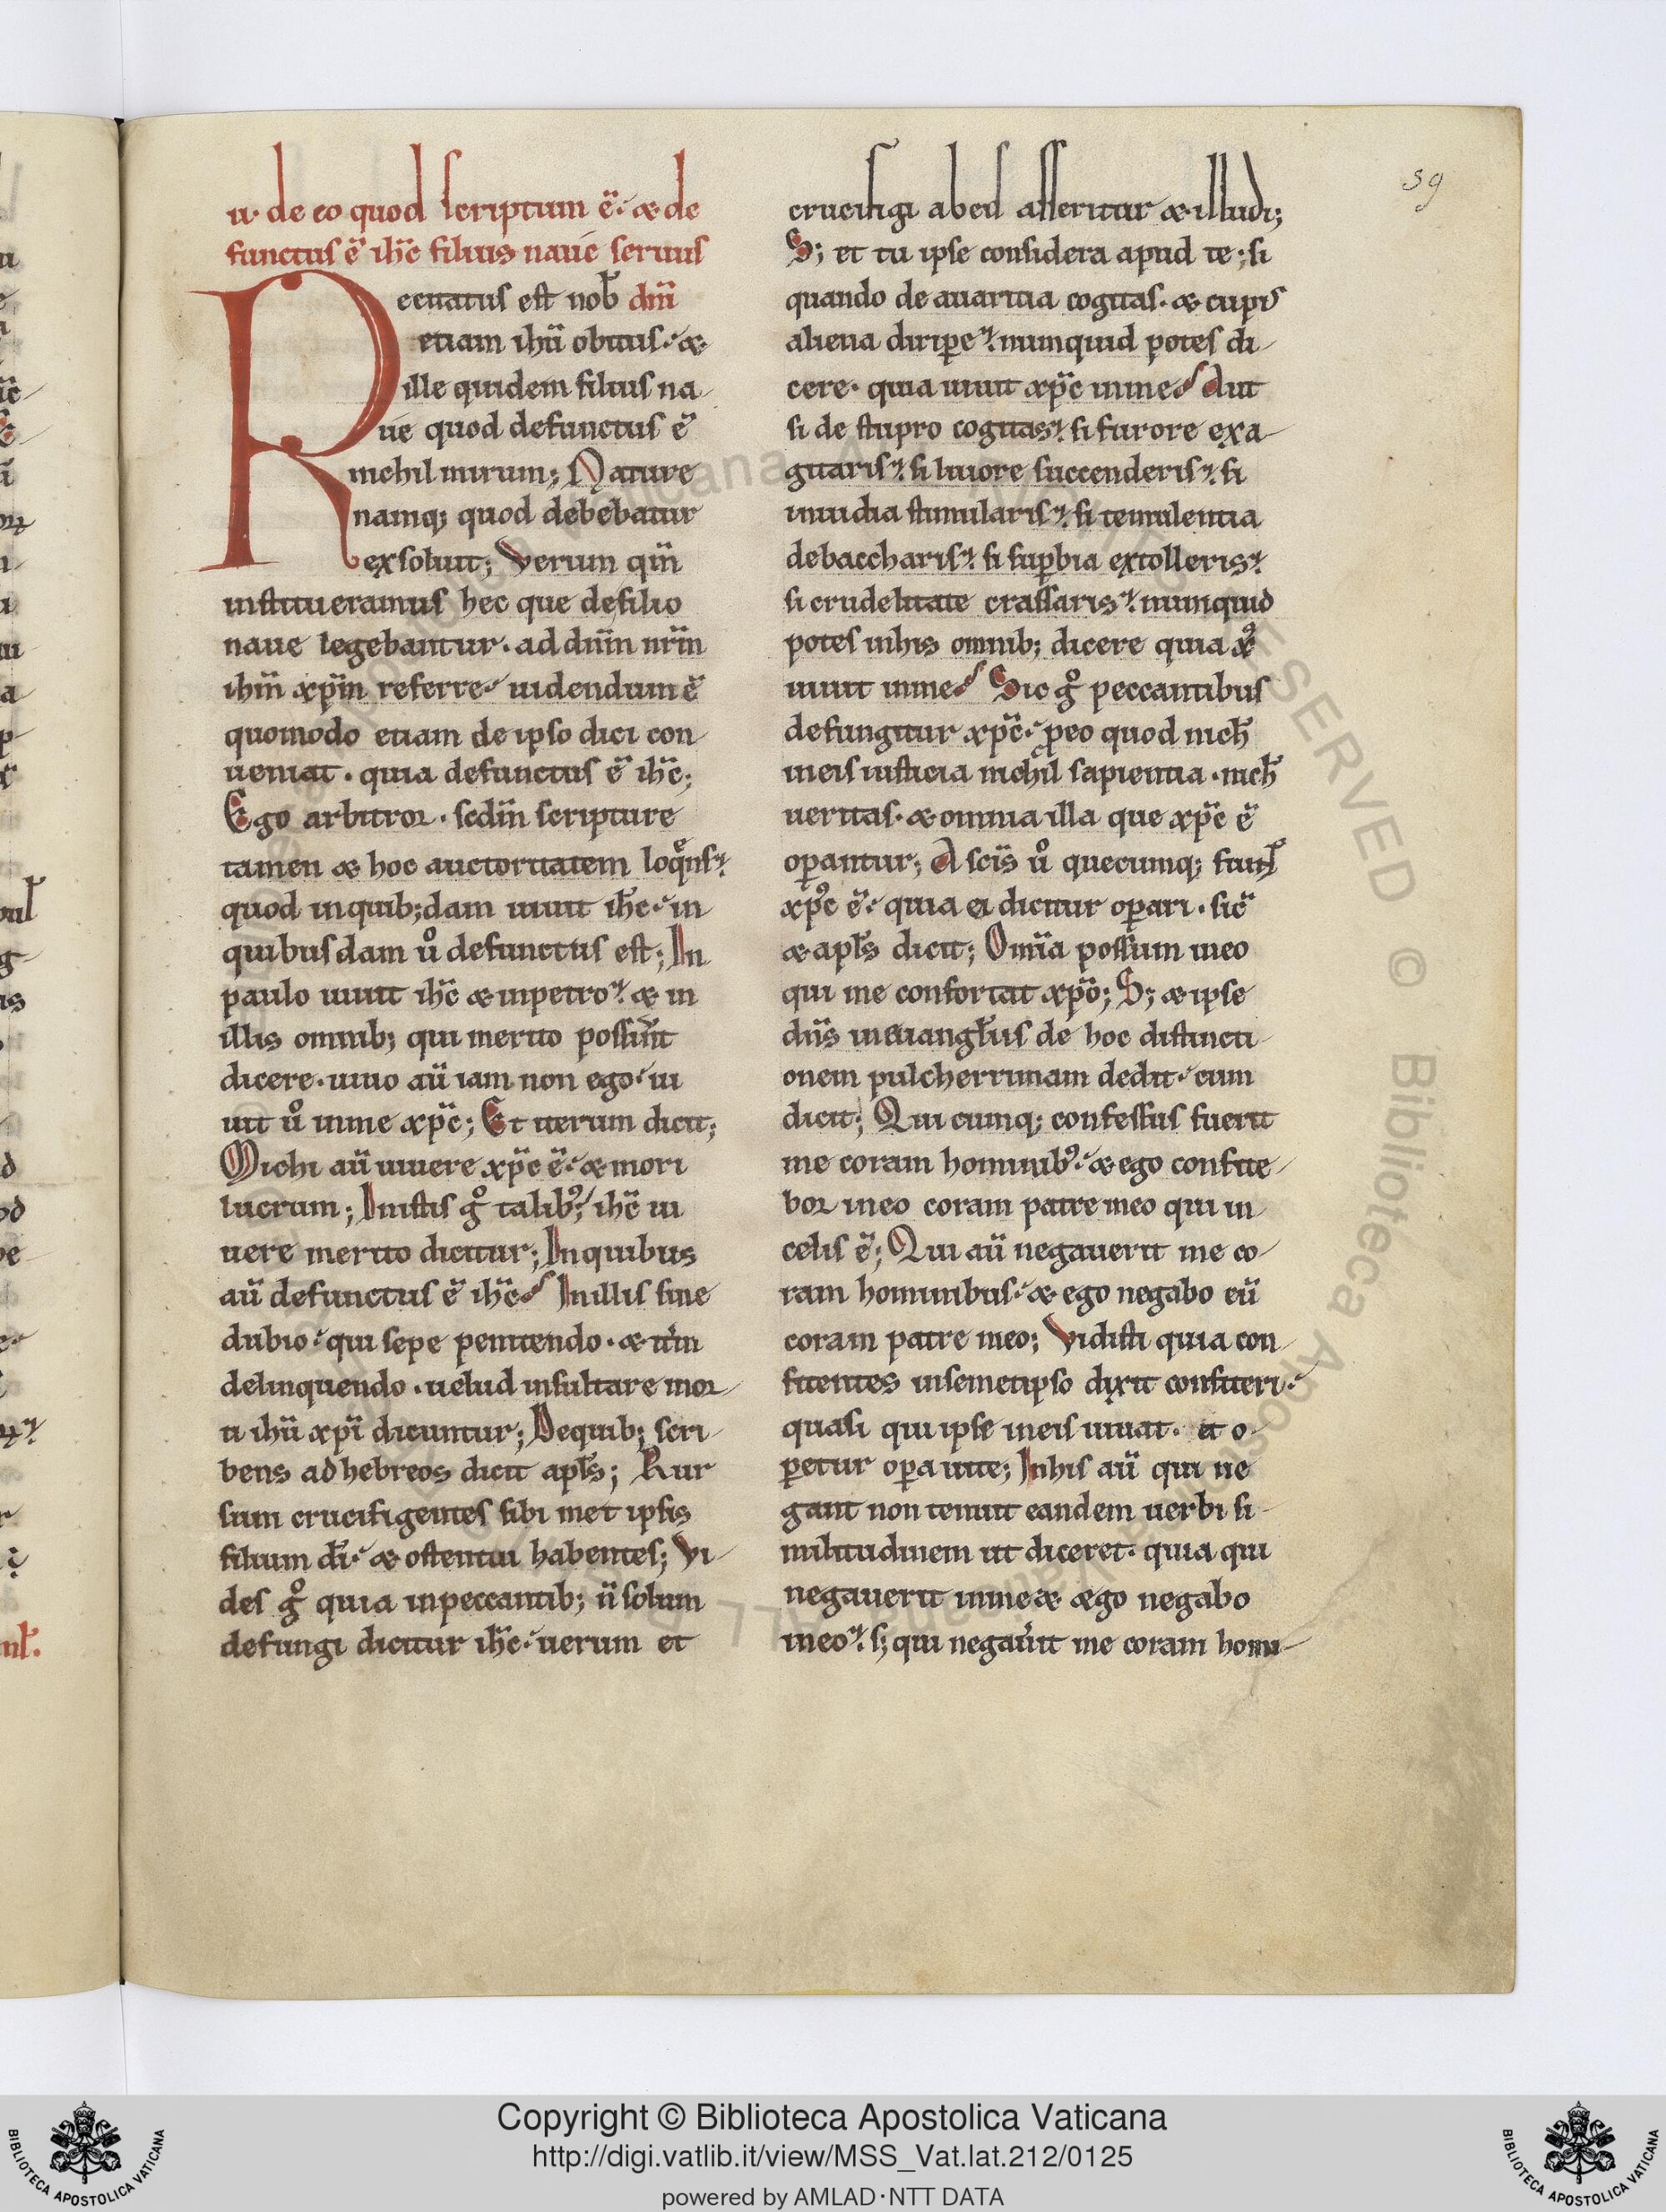 59
u· de eo quod scriptum ē· & de
functus ē ihc̄ filius naue seruus
Recitatus est nob̄ dn̄i
etiam ihū obitus· &
ille quidem filius na-
ue quod defunctus ē
nichil mirum; Nature
namq; quod debebatur
exsoluit; Verum qm̄
institueramus hec que defilio
naue legebantur· ad dnm̄ nrm̄
ihm̄ xpm̄ referre· uidendum ē
quomodo etiam de ipso dici con-
ueniat· quia defunctus ē ihc̄;
Ego arbitror· scdm̄ scripture
tamen & hoc auctoritatem loqns
quod inquib;dam uiuit ihc̄· in
quibusdam u° defunctus est; In
paulo uiuit ihc̄ & inpetro· & in
illis omnib; qui merito possint
dicere· uiuo aū iam non ego· ui
uit u° inme xpc̄; Et iterum dicit;
Michi aū uiuere xpc̄ ē· & mori
lucrum; Inistis g° talib; ihc̄ ui
uere merito dicitur; Inquibus
aū defunctus ē ihc̄ Inillis sine
dubio· qui sepe penitendo· & itm̄
delinquendo· uelud insultare mor-
ti ihū xpī dicuntur; Dequib; scri-
bens ad hebreos dicit apls̄; Rur
sum crucifigentes sibi met ipsis
filium dī· & ostentui habentes; Vi-
des g° quia inpeccantib; n̄ solum
defungi dicitur ihc̄· uerum et
crucifigi abeis asseritur & illudi;
S; et tu ipse considera apud te; si
quando de auaritia cogitas· & cupis
aliena diripe· numquid potes di-
cere· quia uiuit xpc̄ inme Aut
si de stupro cogitas· si furore exa-
gitaris· si liuore succenderis· si
inuidia stimularis· si temulentia
debaccharis· si supbia extolleris·
si crudelitate crassaris· numquid
potes inhis omnib; dicere quia xp
uiuit inme Sic g° peccantibus
defungitur xpc̄· p eo quod nich̄
ineis iusticia nichil sapientia· nich̄
ueritas· & omnia illa que xpc̄ ē
opantur; A scīs u° quecumq; fiunt
xpc̄ ē· quia ei dicitur opari· sic̄
& apls̄ dicit; Omīa possum ineo
qui me confortat xpō; S; & ipse
dns̄ ineuangliis de hoc distincti-
onem pulcherrimam dedit· cum
dicit; Qui cumq; confessus fuerit
me coram hominib;· & ego confite-
bor ineo coram patre meo qui in
celis ē; Qui aū negauerit me co-
ram hominibus· & ego negabo eū
coram patre meo; Vidisti quia con-
fitentes insemetipso dixit confiteri·
quasi qui ipse ineis uiuat· et o-
petur opa uite; Inhis aū qui ne
gant non tenuit eandem uerbi si-
militudinem ut diceret· quia qui
negauerit inme & ego negabo
ineo· s; qui negauit me coram homi-
Copyright © Biblioteca Apostolica Vaticana
http://digi.vatlib.it/view/MSS_Vat.lat.212/0125
powered by AMLAD·NTT DATA
BIBLIOTECA APOSTOLICA VATICANA
BIBLIOTECA APOSTOLICA VATICANA